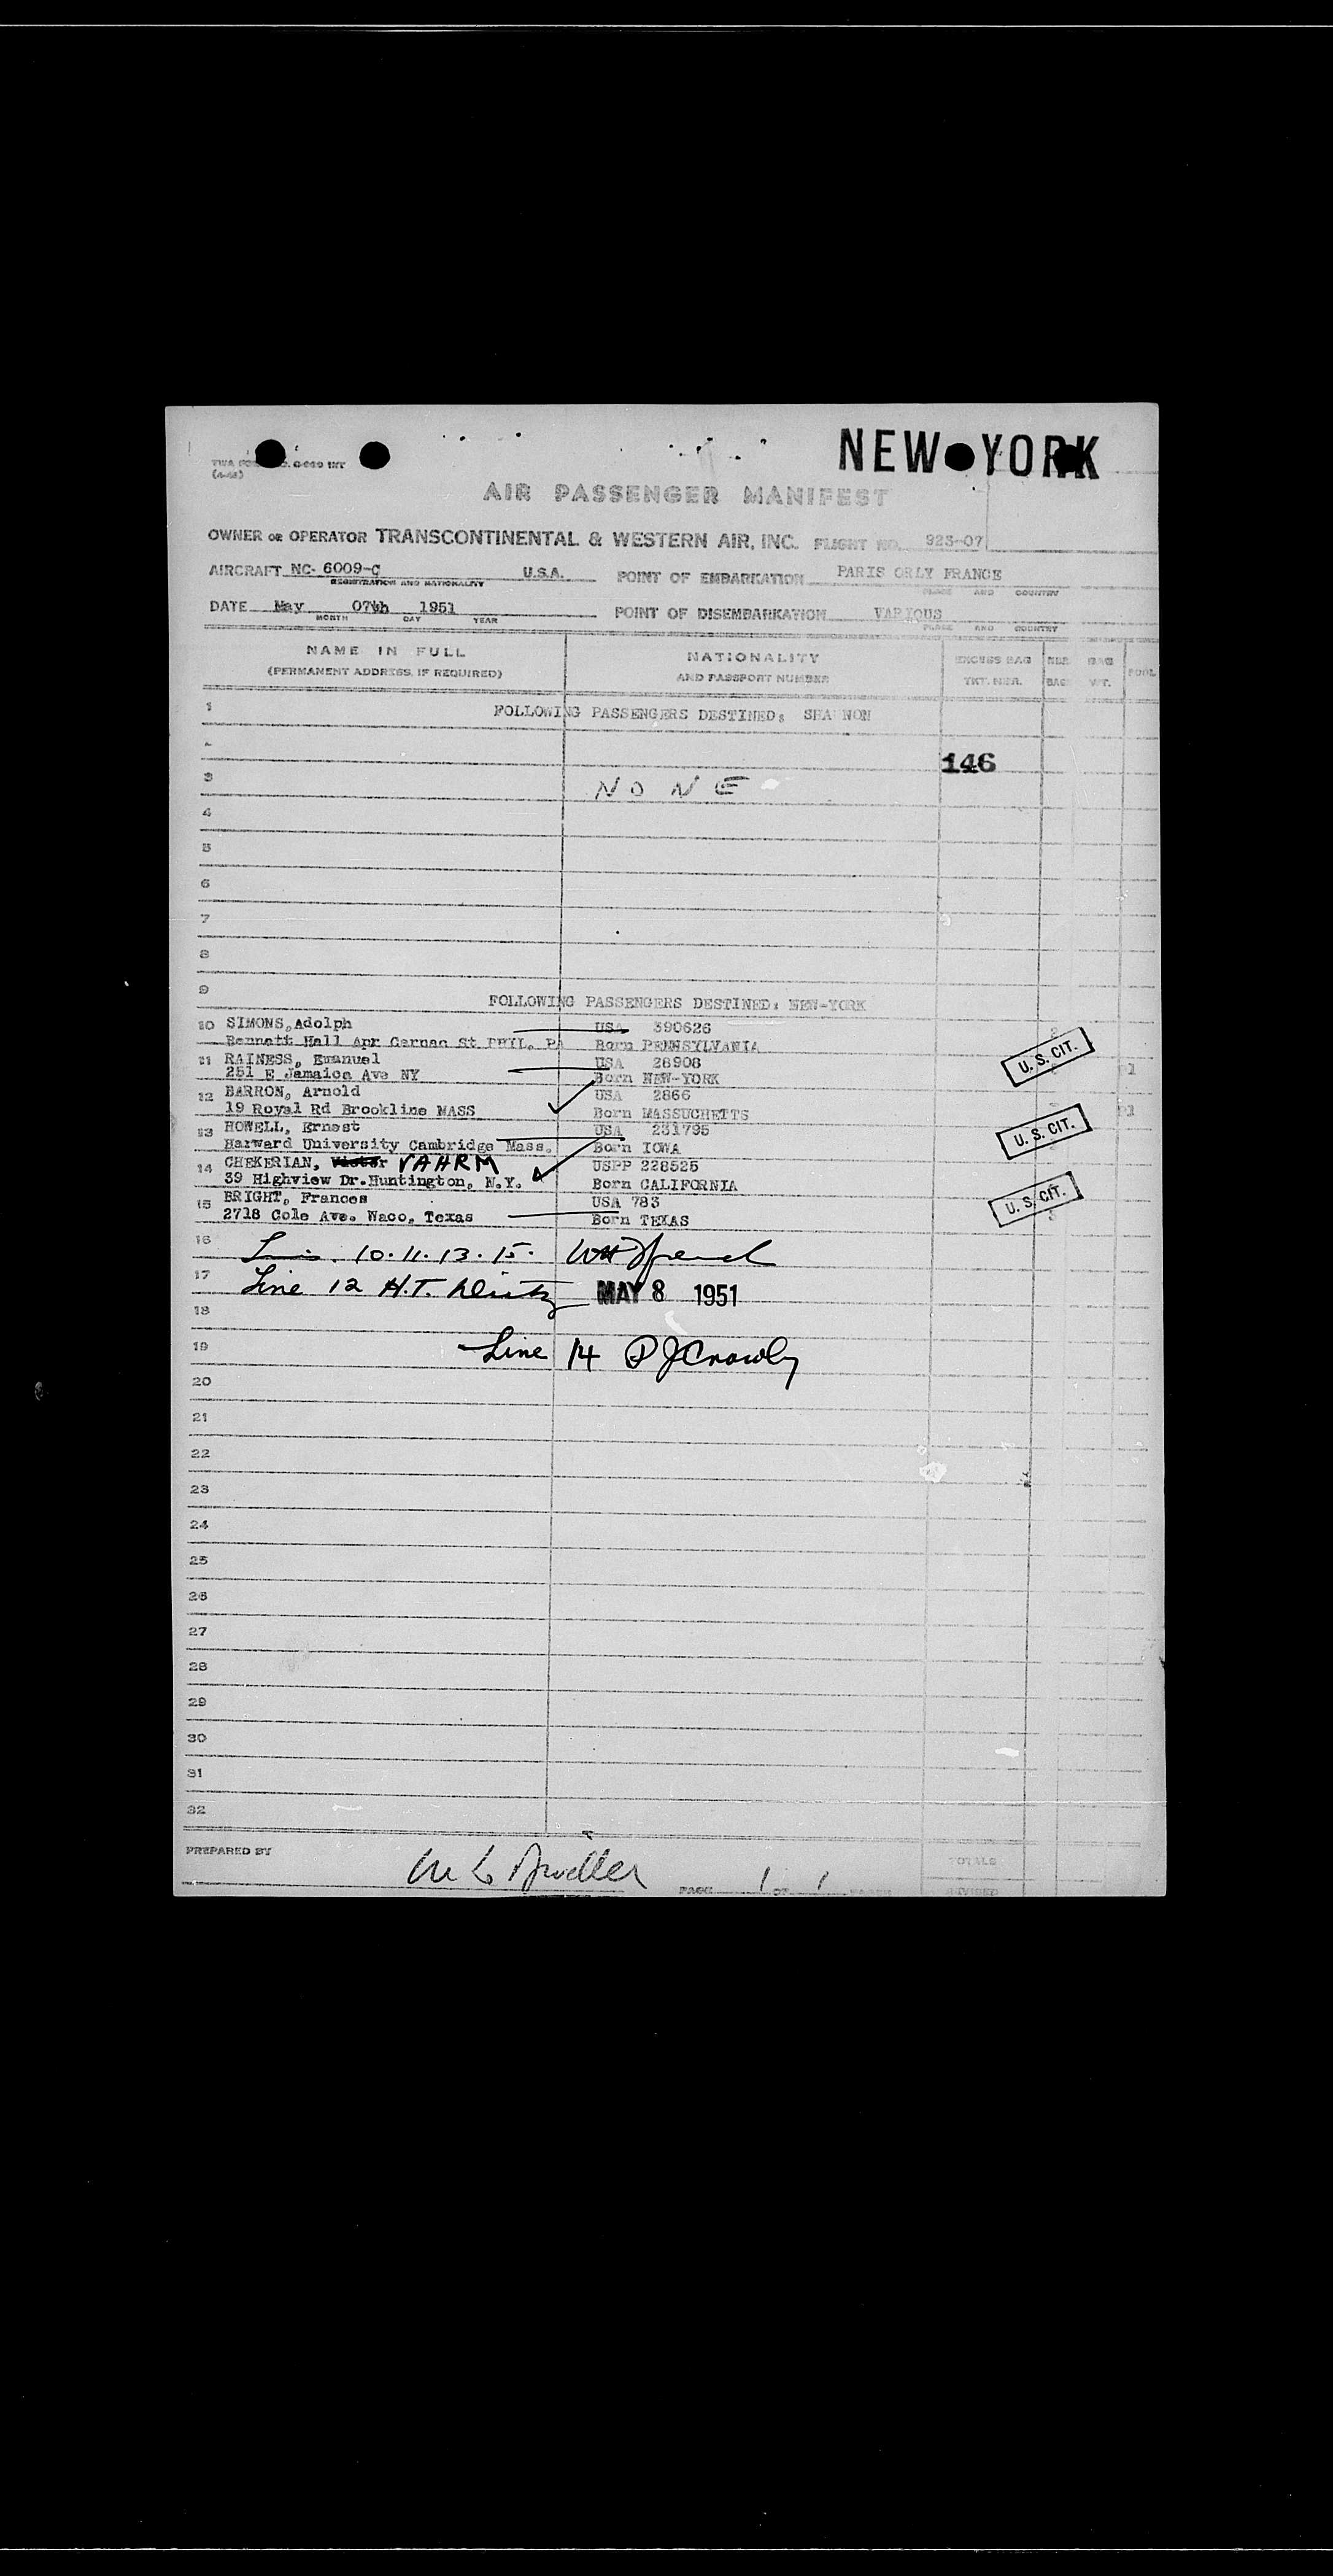 NEW YORK
AIR PASSENGER MANIFEST
OWNER OR OPERATOR TRANSCONTINENTAL & WESTERN AIR, INC. FLIGHT NO. 923-07
AIRCRAFT NC- 6009-C U.S.A. POINT OF EMBARKATION PARIS ORLY FRANCE
REGISTRATION AND NATIONALITY PLACE AND COUNTRY
DATE May 07th 1951 POINT OF DISEMBARKATION VARIOUS
MONTH DAY YEAR PLACE AND COUNTRY
NAME IN FULL NATIONALITY EXCESS BAG BAG
(PERMANENT ADDRESS, IF REQUIRED) AND PASSPORT NUMBER TKT. NBR. BAGS WT. POOL
1 FOLLOWING PASSENGERS DESTINED: SHANNON
2
146
3 NONE
4
5
6
7
8
9
FOLLOWING PASSENGERS DESTINED: NEW-YORK
10 SIMONS, Adolph USA 390626
Bennett Hall Apr German St PHIL. PA Born PENNSYLVANIA
11 RAINESS, Emanuel USA 28908 U.S. CIT.
251 E Jamaica Ave NY Born NEW-YORK
12 BARRON, Arnold USA 2866
19 Royal Rd Brookline MASS Born MASSUCHETTS
13 HOWELL, Ernest USA 231795 U.S. CIT.
Harward University Cambridge Mass. Born IOWA
14 CHEKERIAN, Victor VAHRM USPP 228525
39 Highview Dr. Huntington, N.Y. Born CALIFORNIA
15 BRIGHT, Frances USA 783 U.S. CIT.
2718 Cole Ave. Waco, Texas Born TEXAS
16 10. 11. 13. 15.
17 Line 12 H.T. MAY 8 1951
18
19 Line 14 P J Crowley
20
21
22
23
24
25
26
27
28
29
30
31
32
PREPARED BY TOTALS
PAGE 1 OF 1